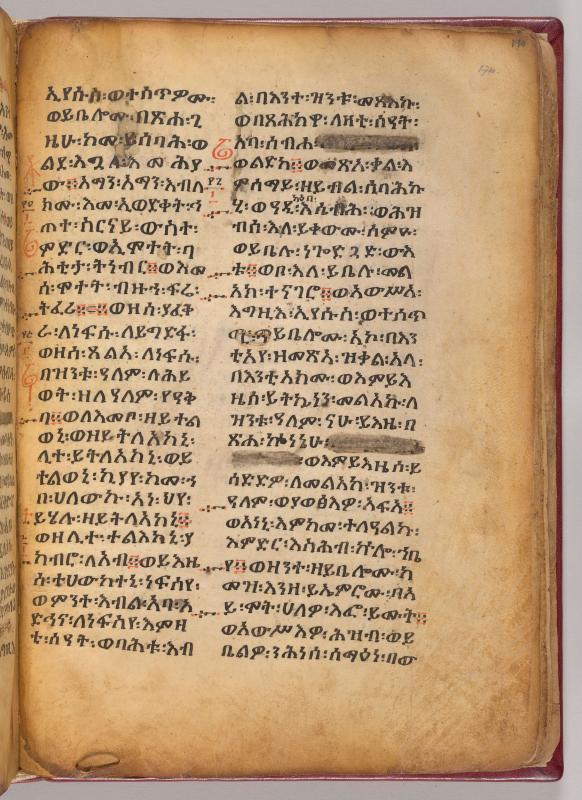 ኢየሱስ፡ወተሰጥዎሙ፡
ወይቤሎሙ፡በጽሐ፡ጊ
ዜሁ፡ከመ፡ይሰባሕ፡ወ
ልደ፡እጓለ፡እመሕያ
ው፡፡አማን፡አማን፡እብለ
ክሙ፡እመ፡ኢወደቀት፡ኅ
ጠተ፡ስርናይ፡ውስተ፡
ምድር፡ወኢሞተት፡ባ
ሕቲታ፡ትነብር፡፡ወእመ
ሰ፡ሞተት፡ብዙኅ፡ፍሬ፡
ትፈሪ፡፡ወዘሰ፡ያፈቅ
ራ፡ለነፍሱ፡ለይግድፋ፡
ወዘሰ፡ጸልአ፡ለነፍሱ፡
በዝንቱ፡ዓለም፡ለሕይ
ወት፡ዘለዓለም፡የዓቅ
ባ፡፡ወለእመቦ፡ዘይተል
ወኒ፡ወዘይትለአከኒ፡
ሊተ፡ይትለአከኒ፡ወይ
ትልወኒ፡ከያየ፡ከመ፡ኀ
በ፡ሀለውኩ፡አነ፡ህየ፡
ይሄሉ፡ዘይትለአከኒ፡፡
ወዘሊተ፡ተልእከኒ፡ያ
ከብሮ፡ለአብ፡፡ወይእዜ
ሰ፡ተሀውከተኒ፡ነፍስየ፡
ወምንተ፡እብል፡አባ፡አ
ድኅና፡ለነፍስየ፡እምዛ
ቲ፡ሰዓት፡ወባሕቱ፡እብ
ል፡በእንተ፡ዝንቱ፡መጻእኩ፡
ወበጻሕክዋ፡ለዛቲ፡ሰዓት፡
አባ፡ሰብሐ፡
ወልድከ፡፡ወመጽአ፡ቃል፡እ
ምሰማይ፡ዘይብል፡ሰባሕኩ
ሂ፡ወዓዲ፡እሴብሕ፡፡ወሕዝ
ብሰ፡እለ፡ይቀውሙ፡ሰሚዖ፡
ወይቤሉ፡ነጐድጓድ፡ውእ
ቱ፡፡ወቦ፡እለ፡ይቤሉ፡መል
አክ፡ተናገሮ፡፡ወአውሥአ፡
እግዚእ፡ኢየሱስ፡ወተሰጥ
ዎ፡ወይቤሎሙ፡አኮ፡በእን
ቲአየ፡ዘመጽአ፡ዝቃል፡አላ፡
በእንቲአክሙ፡ወእምይእ
ዜሰ፡ይትኴነን፡መልአኩ፡ለ
ዝንቱ፡ዓለም፡ናሁ፡ይእዜ፡በ
ጽሐ፡ኵነኔሁ፡
፡ወእምይእዜሰ፡ይ
ሰድድዎ፡ለመልአከ፡ዝንቱ፡
ዓለም፡ወያወፅእዎ፡አፍአ፡፡
ወአነኒ፡እምከመ፡ተለዓልኩ፡
እምድር፡እስሕብ፡ኵሎ፡ኀቤ
የ፡፡ወዘንተ፡ዘይቤሎሙ፡ከ
መዝ፡እንዘ፡ይኤምሮሙ፡በአ
ይ፡ሞት፡ሀለዎ፡እፎ፡ይሙት፡፡
ወአውሥእዎ፡ሕዝብ፡ወይ
ቤልዎ፡ንሕነሰ፡ሰማዕነ፡በው